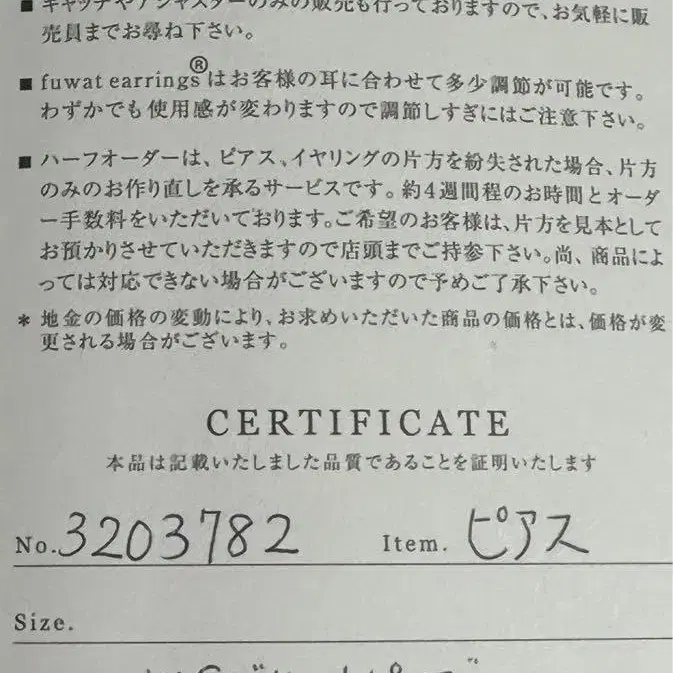 ■ キャッチやアジャスターのみの販売も行っておりますので、お気軽に販
売員までお尋ね下さい。
■ fuwat earrings®はお客様の耳に合わせて多少調節が可能です。
わずかでも使用感が変わりますので調節しすぎにはご注意下さい。
■ ハーフオーダーは、ピアス、イヤリングの片方を紛失された場合、片方
のみのお作り直しを承るサービスです。約4週間程のお時間とオーダ
ー手数料をいただいております。ご希望のお客様は、片方を見本として
お預かりさせていただきますので店頭までご持参下さい。尚、商品によ
っては対応できない場合がございますので予めご了承下さい。
* 地金の価格の変動により、お求めいただいた商品の価格とは、価格が変
更される場合がございます。
CERTIFICATE
本品は記載いたしました品質であることを証明いたします
No. 3203782 Item. ピアス
Size.